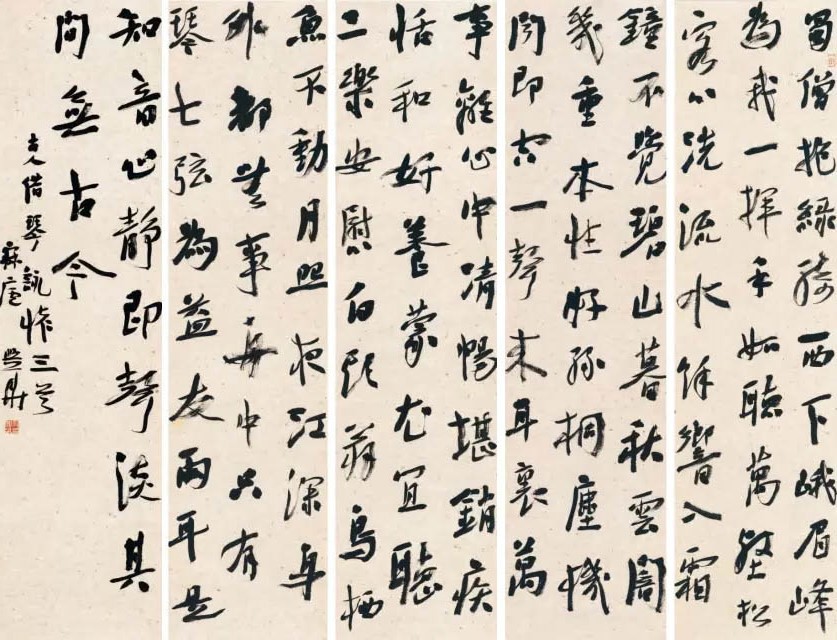 蜀僧抱綠綺西下峨眉峰
為我一揮手如聽萬壑松
客心洗流水餘響入霜
鐘不覺碧山暮秋雲闇
幾重本性好絲桐塵機
聞即空一聲來耳裏萬
事離心中清暢堪銷疾
恬和好養蒙尤宜聽
三樂安慰白頭翁鳥栖
魚不動月照夜江深身
外都無事舟中只有
琴七弦為益友兩耳是
知音心靜即聲淡其
間無古今
古人借琴詠懷三首